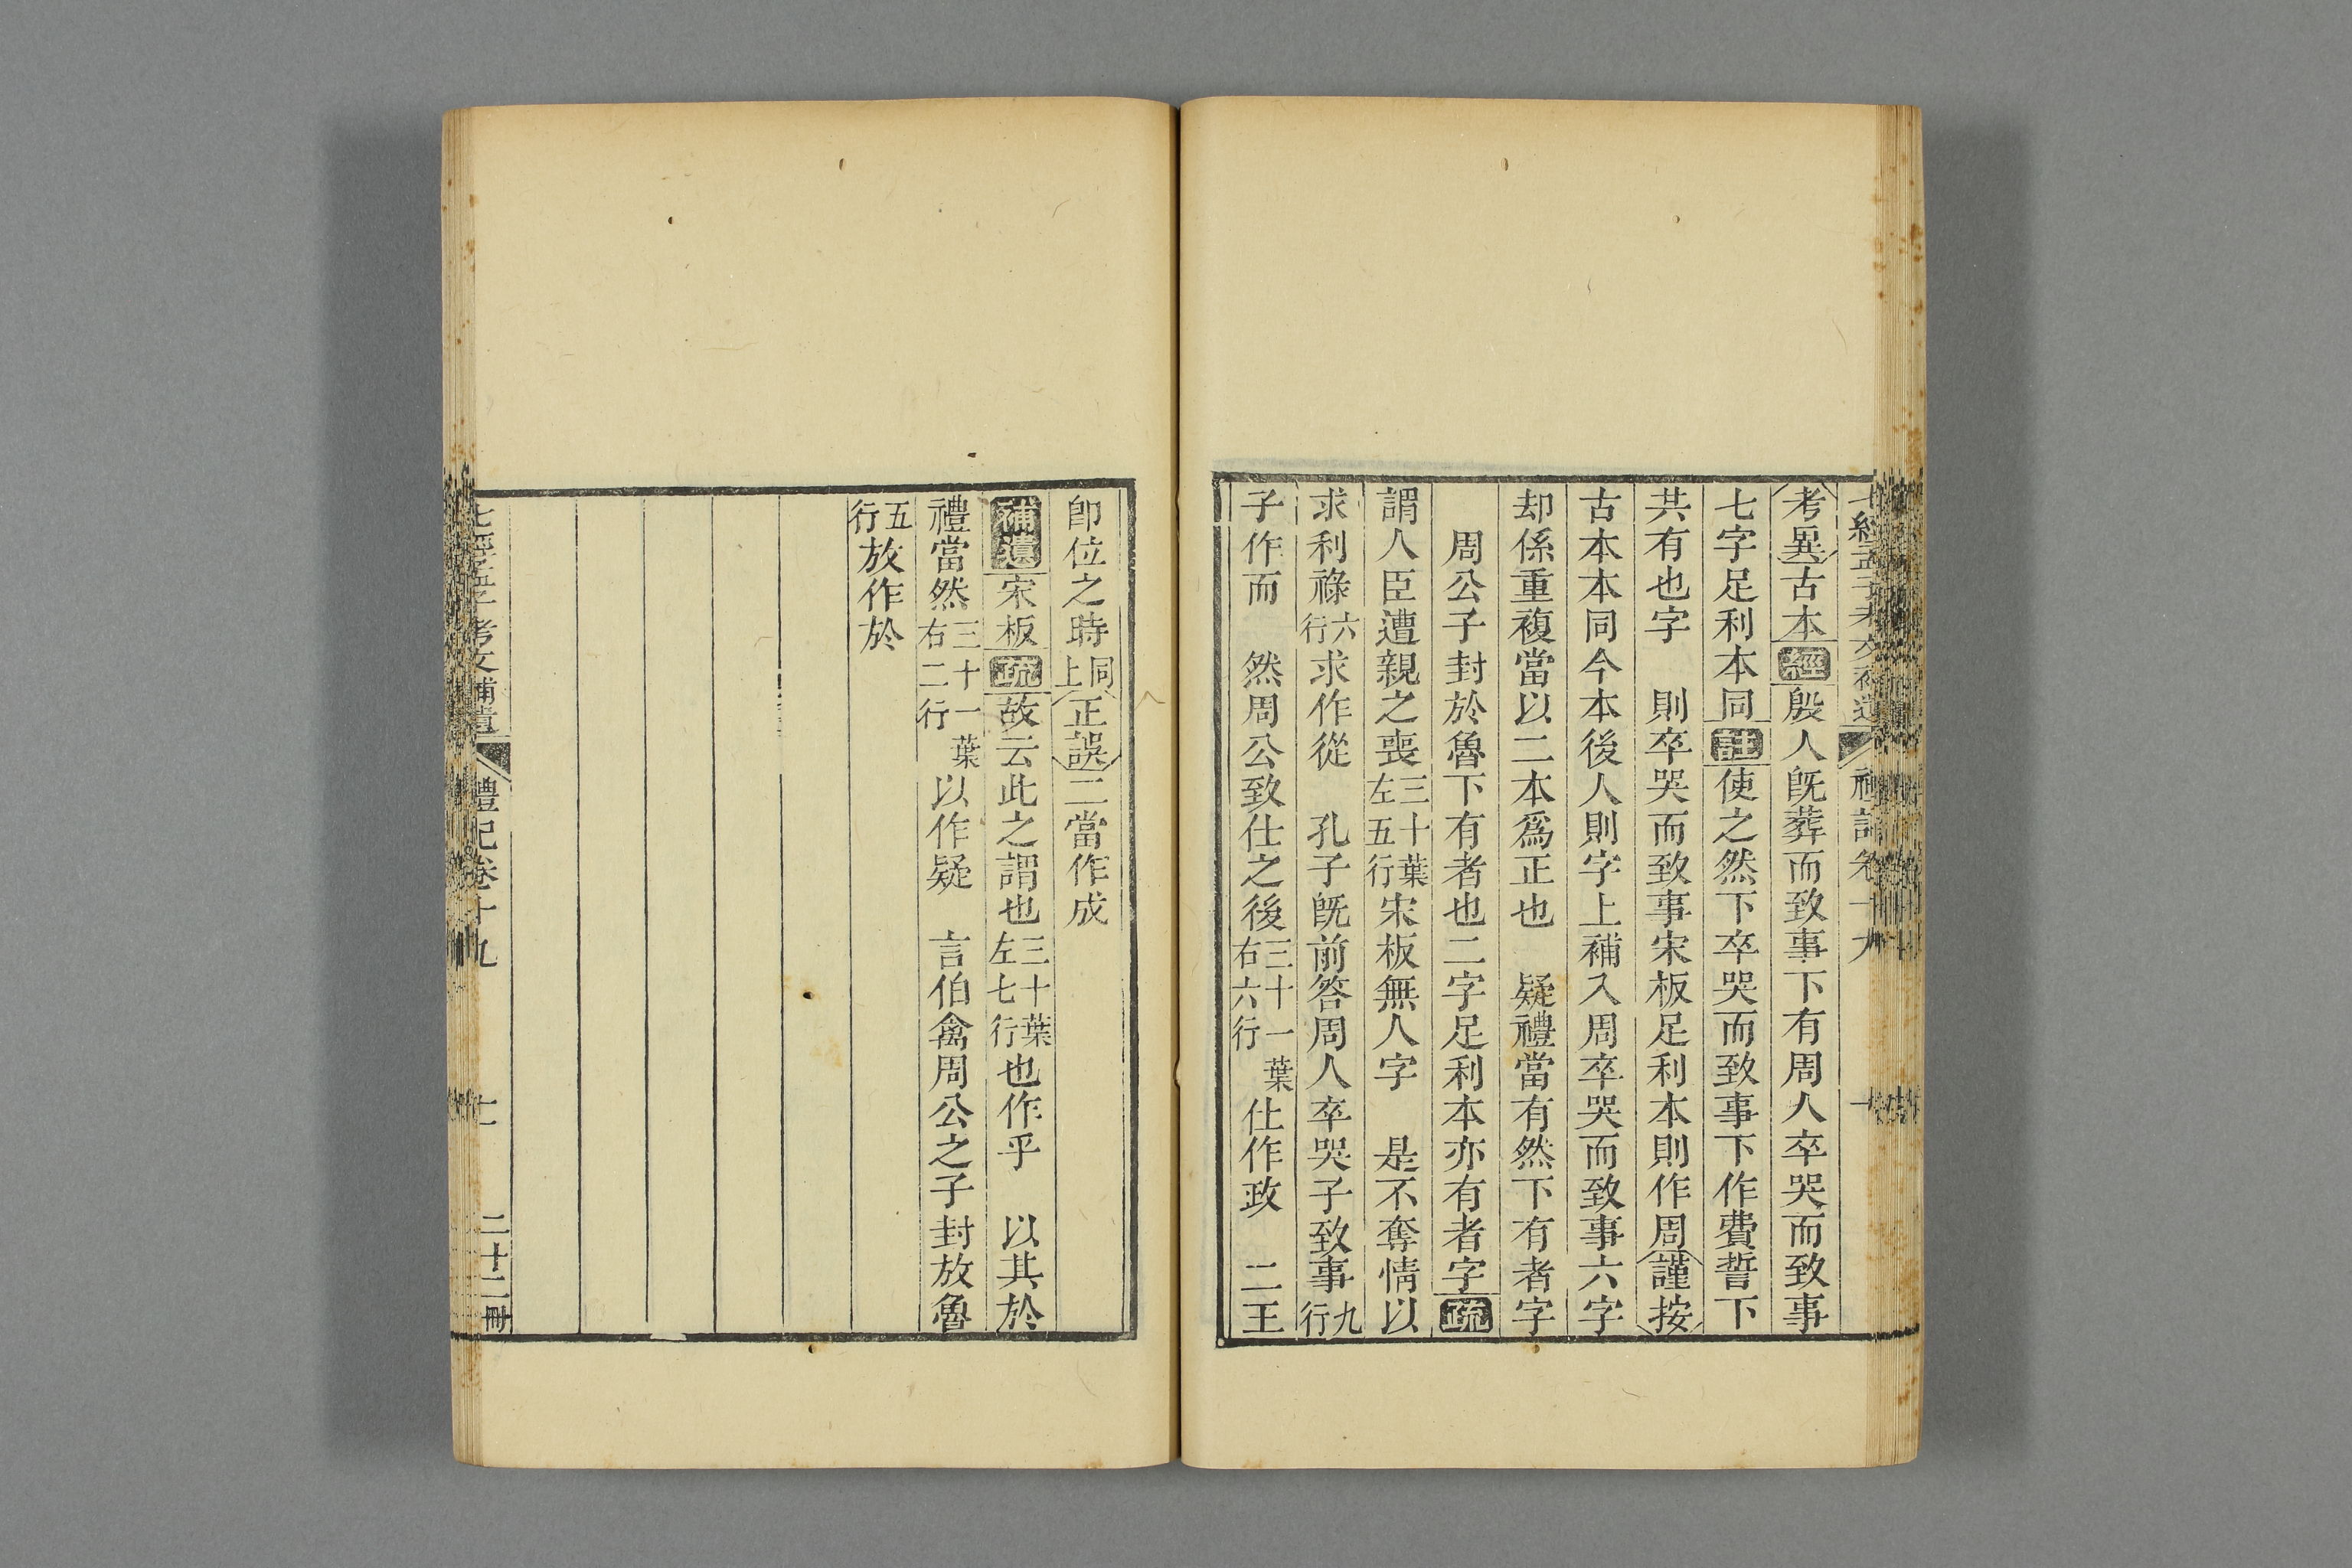 考異古本經殷人旣葬而致事下有周人卒哭而致事
七字足利本同註使之然下卒哭而致事下作費誓下
共有也字　則卒哭而致事宋板足利本則作周謹按
古本本同今本後人則字上補入周卒哭而致事六字
却係重複當以二本爲正也　疑禮當有然下有者字
周公子封於魯下有者也二字足利本亦有者字疏
謂人臣遭親之喪三十葉左五行宋板無人字　是不奪情以
求利祿六行求作從　孔子旣前答周人卒哭子致事九行
子作而　然周公致仕之後三十一葉右六行仕作政　二王
卽位之時同上正誤二當作成
補遺宋板疏故云此之謂也三十葉左七行也作乎　以其於
禮當然三十一葉右二行以作疑　言伯禽周公之子封放魯
五行放作於
七經孟子考文補遺　禮記卷十九　七　二十二冊